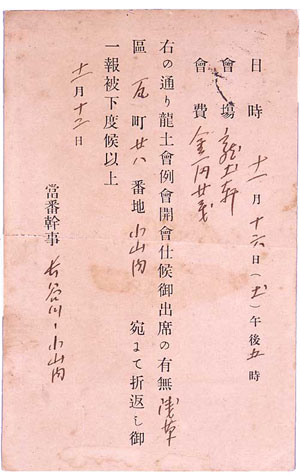 日時 十一月十六日(土)午後五時
會塲 龍土軒
會費 金一円廿戔
右の通り龍土會例會開會仕候御出席の有無淺草
區瓦町廿八番地小山内宛まて折返し御
一報被下度候以上
十一月十二日
當番幹事 長谷川、小山内